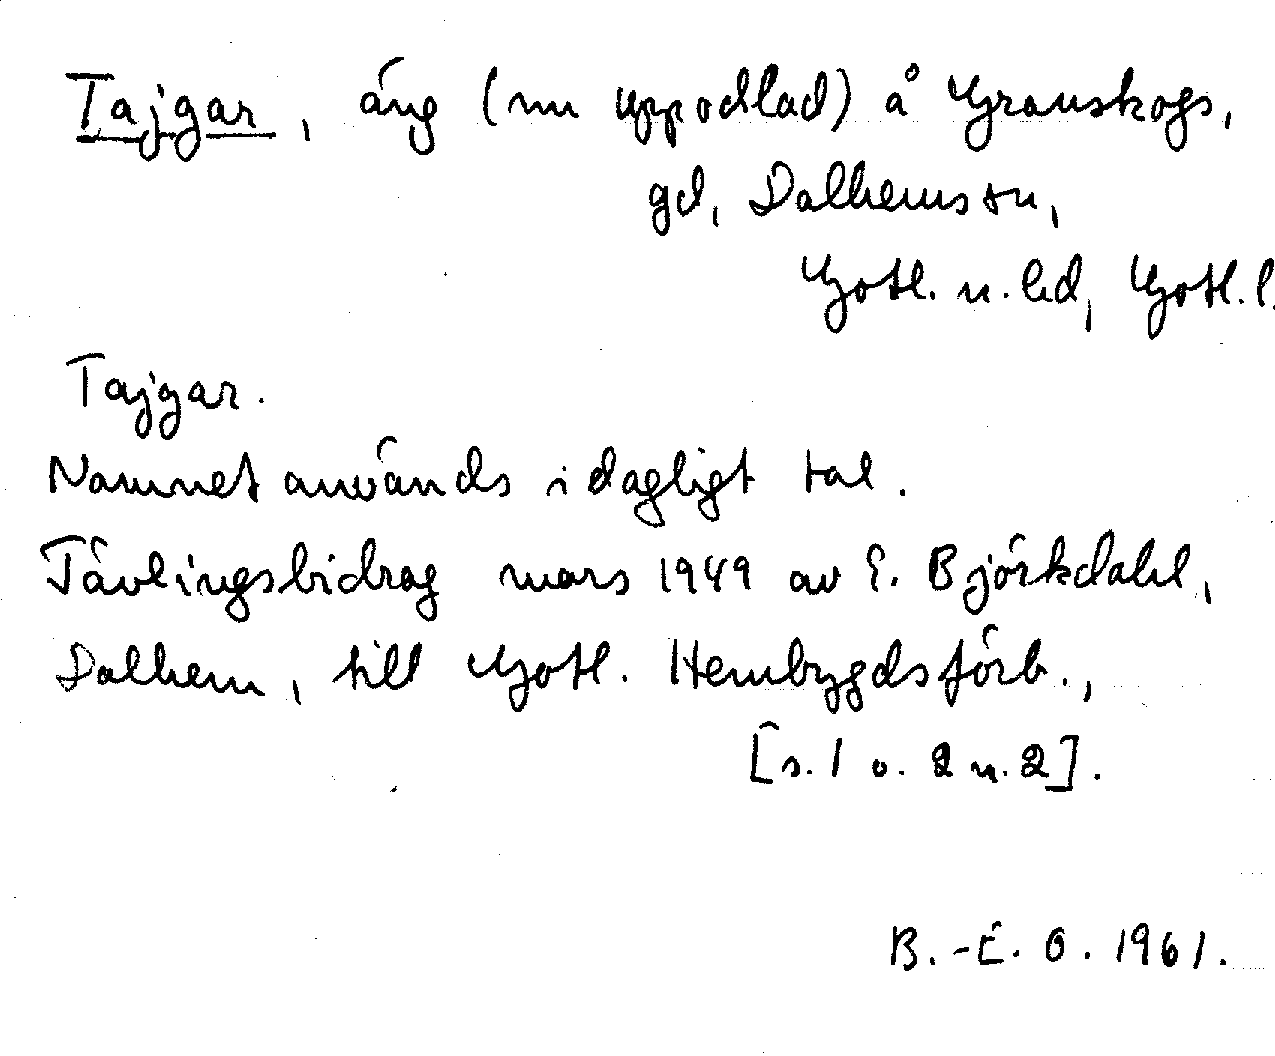 Tajgar, äng (nu uppodlad) å Granskogs,
gd, Dalhems sn,
Gotl. n. hd, Gotl. l.
Tajgar.
Namnet används i dagligt tal.
Tävlingsbidrag mars 1949 av E. Björkdahl,
Dalhem, till Gotl. Hembygdsförb.,
[s. 1 o. 2 n. 2].
B.-E. O. 1961.